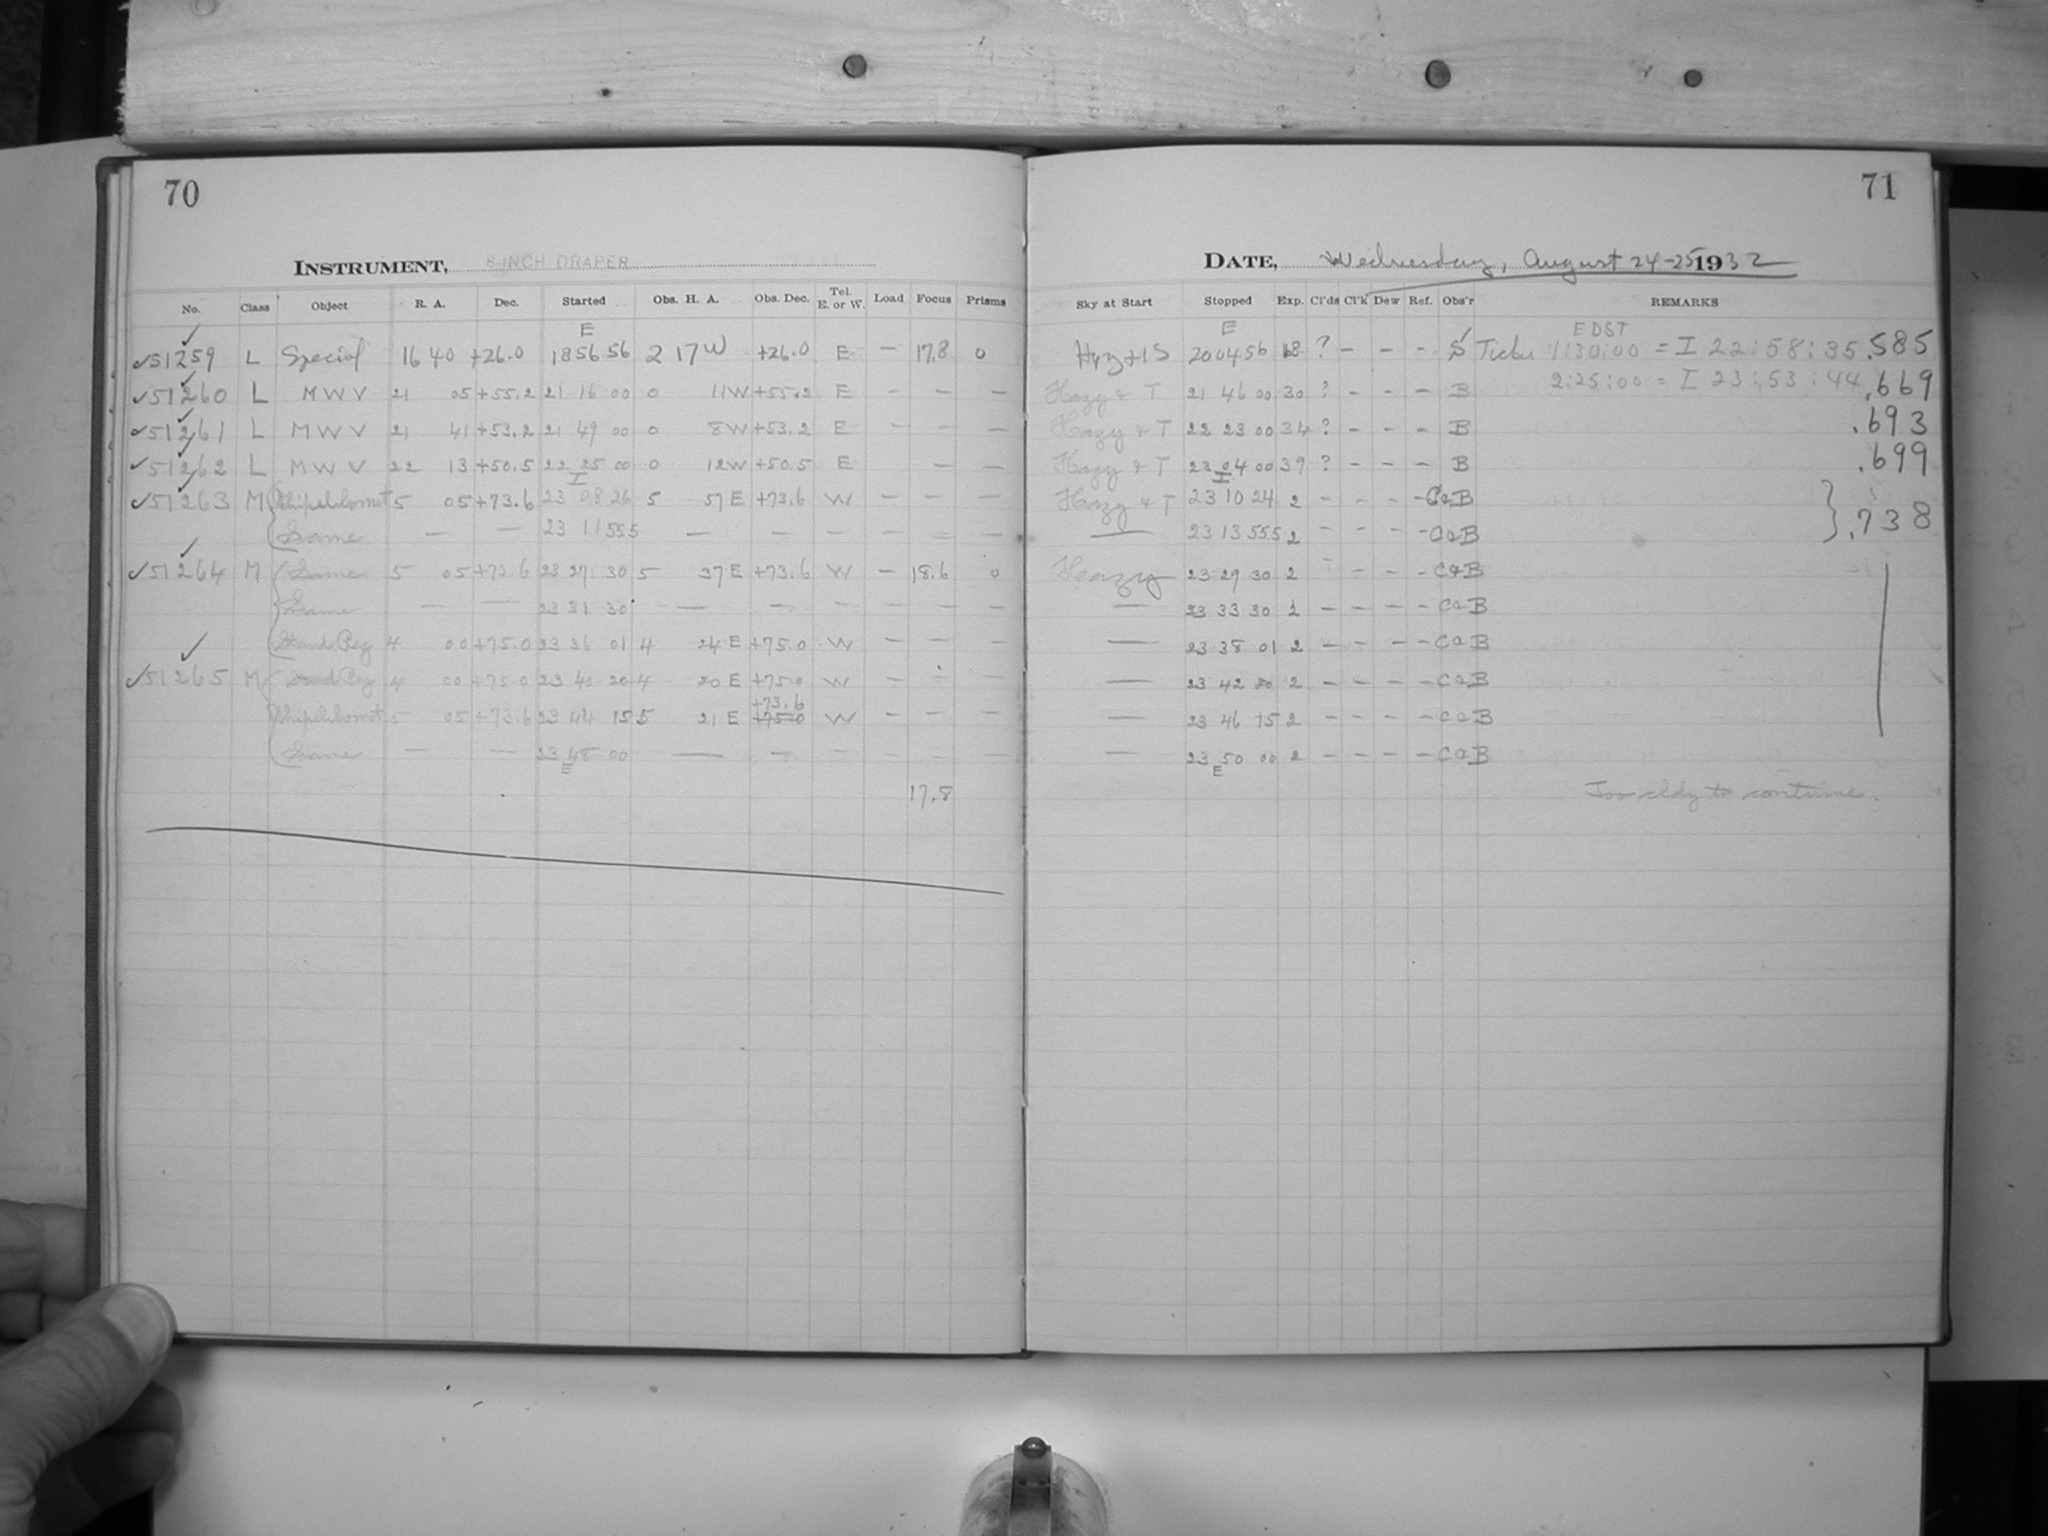 70
INSTRUMENT, 8-INCH DRAPER
No. Class Object R. A. Dec. Started Obs. H. A. Obs. Dec. Tel. E. or W. Load Focus Prisms
E
✓51259 L Special 16 40 +26.0 18 56 56 2 17 W +26.0 E — 17.8 0
✓51260 L M W V 21 05 +55.2 21 16 00 0 11 W +55.2 E — — —
✓51261 L M W V 21 41 +53.2 21 49 00 0 8 W +53.2 E — — —
✓51262 L M W V 22 13 +50.5 22 25 00 0 12 W +50.5 E — —
I
✓51263 M 5 05 +73.6 23 08 26 5 57 E +73.6 W — — —
Same — — 23 11 55.5 — — — — — —
✓51264 M Same 5 05 +73.6 23 27 30 5 37 E +73.6 W — 18.6 0
Same — — 23 31 30 — — — — — —
4 00 +75.0 23 36 01 4 24 E +75.0 W — — —
✓51265 M 4 00 +75.0 23 40 20 4 20 E +75.0 W — — —
+73.6
5 05 +73.6 23 44 15 5 21 E +75.0 W — — —
Same — — 23 48 00 — — — — — —
E
17.8
71
DATE, Wednesday, August 24-25 1932
Sky at Start Stopped Exp. Cl'ds Cl'k Dew Ref. Obs'r REMARKS
E EDST
Hzy + 1S 20 04 56 68 ? — — — S 1:30:00 = I 22:58:35 .585
Hazy & T 21 46 00 30 ? — — — B 2:25:00 = I 23:53:44 .669
Hazy & T 22 23 00 34 ? — — — B .693
Hazy & T 23 04 00 39 ? — — — B .699
I
Hazy & T 23 10 24 2 — — — — C&B
— 23 13 55.5 2 — — — — C&B } .738
Hazy 23 29 30 2 — — — — C&B
— 23 33 30 2 — — — — C&B
— 23 38 01 2 — — — — C&B
— 23 42 20 2 — — — — C&B
— 23 46 15 2 — — — — C&B
— 23 50 00 2 — — — — C&B
E
Too cldy to continue.